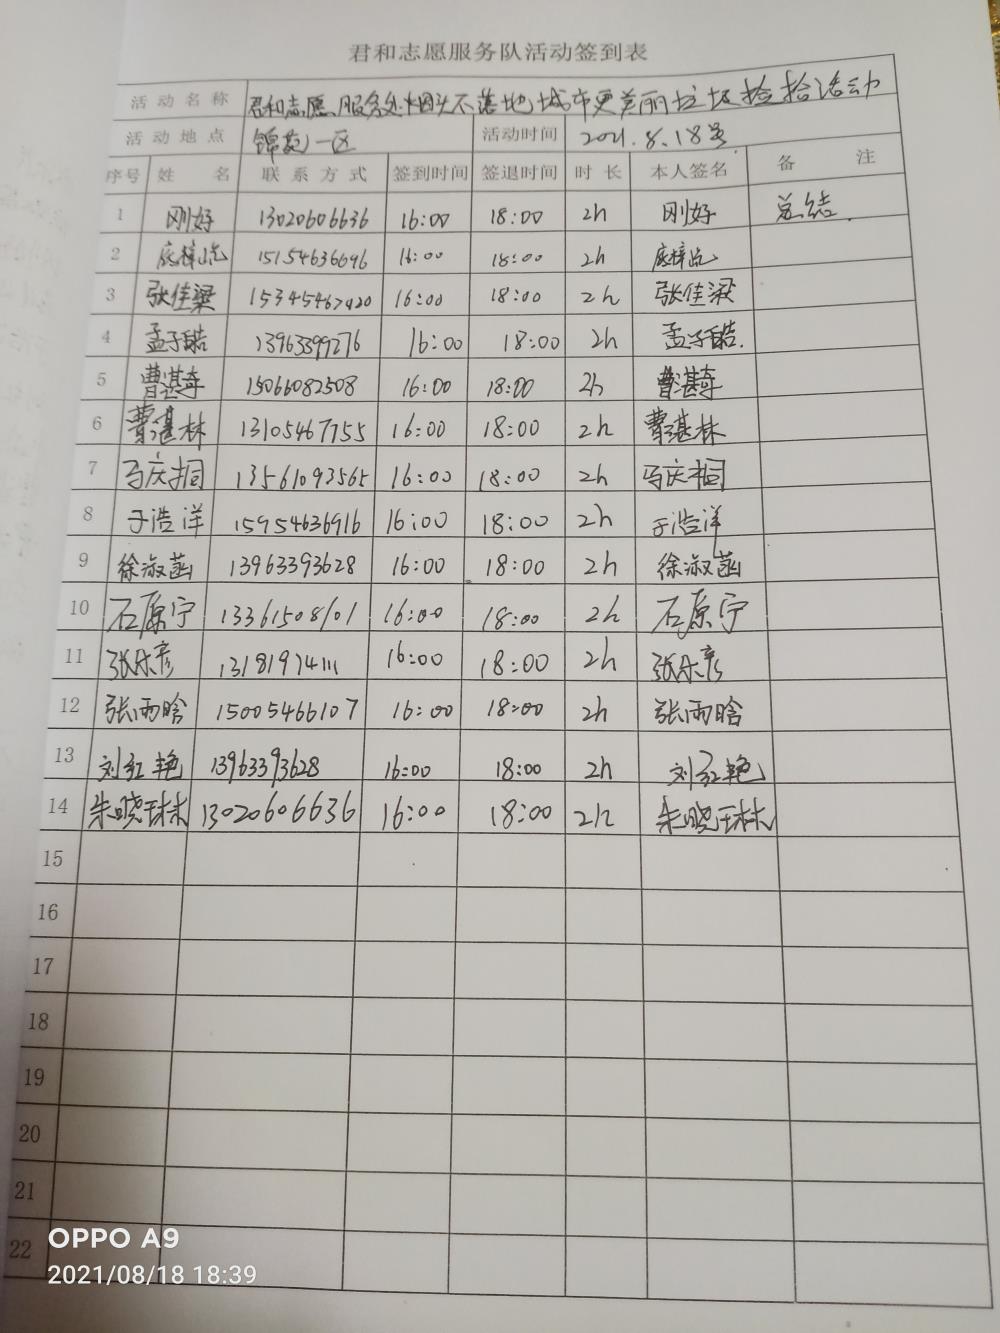 君和志愿服务队活动签到表
活动名称 君和志愿服务处烟头不落地城市更美丽垃圾捡拾活动
活动地点 锦苑一区 活动时间 2021.8.18号
序号 姓名 联系方式 签到时间 签退时间 时长 本人签名 备注
1 刚好 13020606636 16:00 18:00 2h 刚好 总结.
2 15154636696 16:00 18:00 2h
3 张佳梁 15345467920 16:00 18:00 2h 张佳梁
4 孟子皓 13963399276 16:00 18:00 2h 孟子皓.
5 曹湛 15066082508 16:00 18:00 2h 曹湛
6 曹湛林 13105467755 16:00 18:00 2h 曹湛林
7 马庆桐 13561093565 16:00 18:00 2h 马庆桐
8 于浩洋 15954636916 16:00 18:00 2h 于浩洋
9 徐淑菡 13963393628 16:00 18:00 2h 徐淑菡
10 石原宁 13361508101 16:00 18:00 2h 石原宁
11 张乐彦 13181974111 16:00 18:00 2h 张乐彦
12 张雨晗 15005466107 16:00 18:00 2h 张雨晗
13 刘红艳 13963393628 16:00 18:00 2h 刘红艳
14 朱晓琳 13020606636 16:00 18:00 2h 朱晓琳
15
16
17
18
19
20
21
22
OPPO A9
2021/08/18 18:39